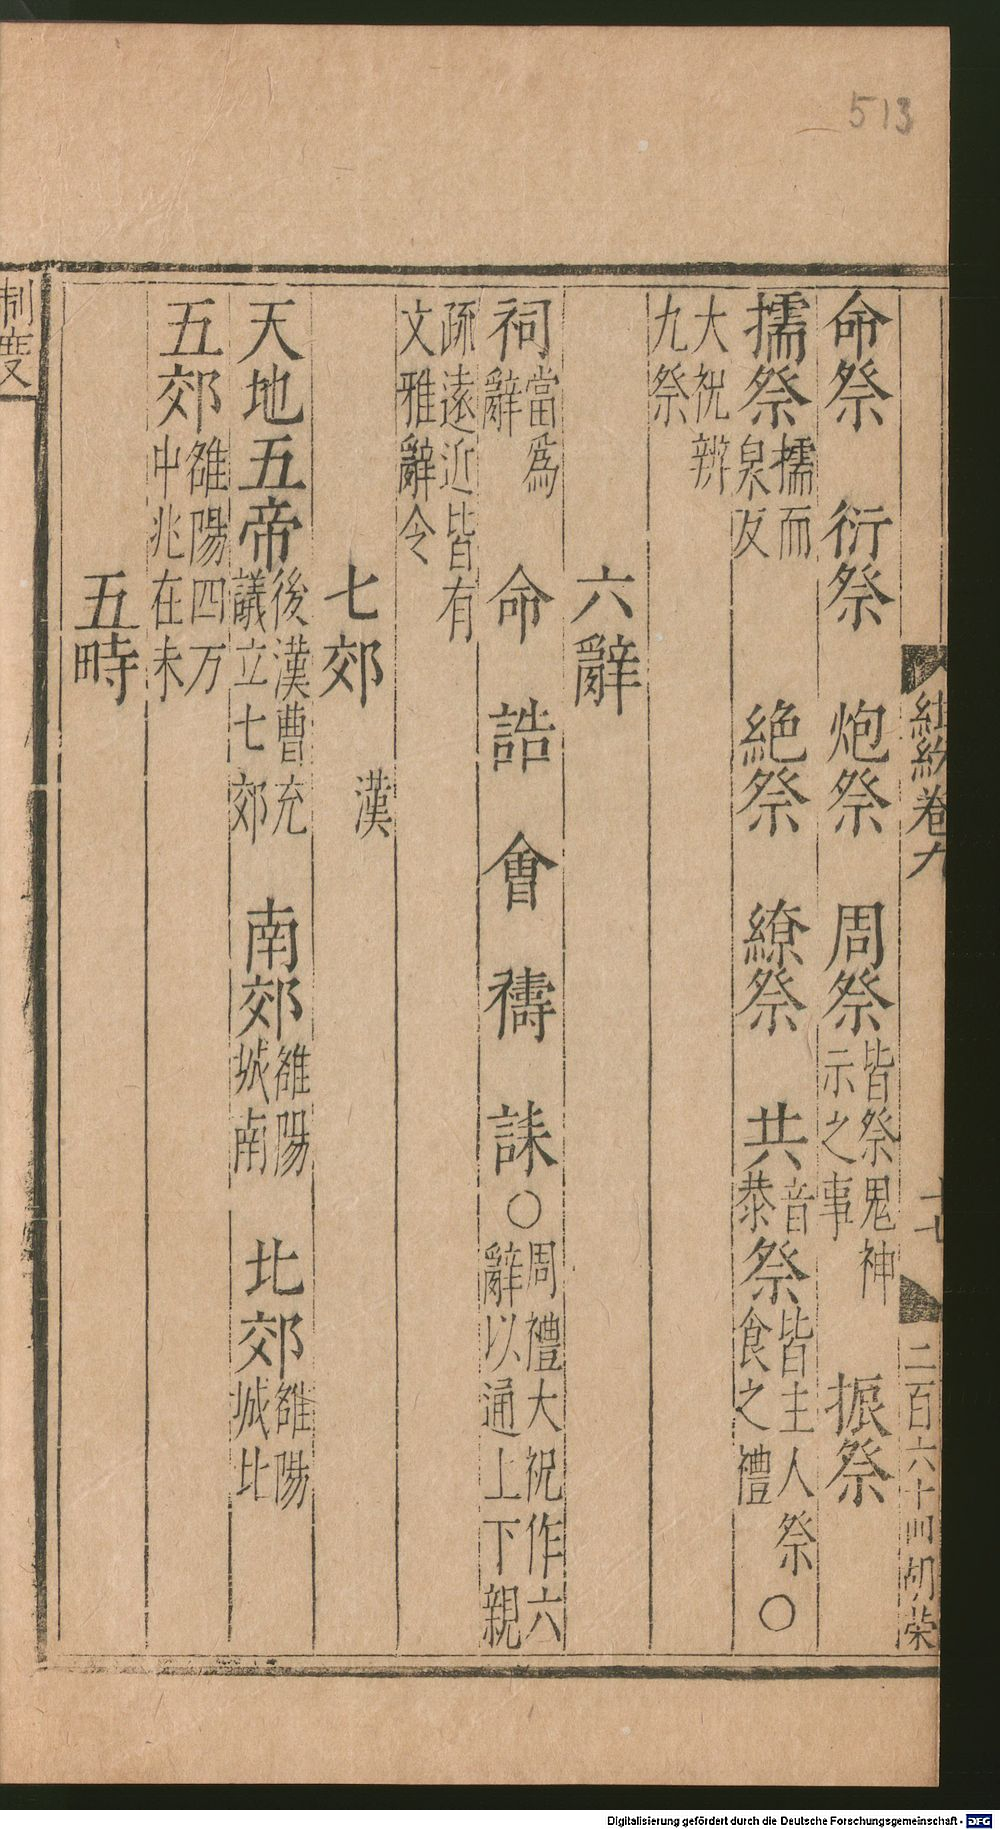 513
命祭　衍祭　炮祭　周祭皆祭鬼神示之事　振祭
擩祭擩而泉反　絶祭　繚祭　共音恭祭皆主人祭食之禮○
大祝辨九祭
六辭
祠當爲辭　命　誥　會　禱　誄○周禮大祝作六辭以通上下親
疏遠近皆有文雅辭令
七郊　漢
天地五帝後漢曹充議立七郊　南郊雒陽城南　北郊雒陽城北
五郊雒陽四方中兆在未
五畤
制度
紺紗卷九
十七
二百六十四胡荣
Digitalisierung gefördert durch die Deutsche Forschungsgemeinschaft - DFG